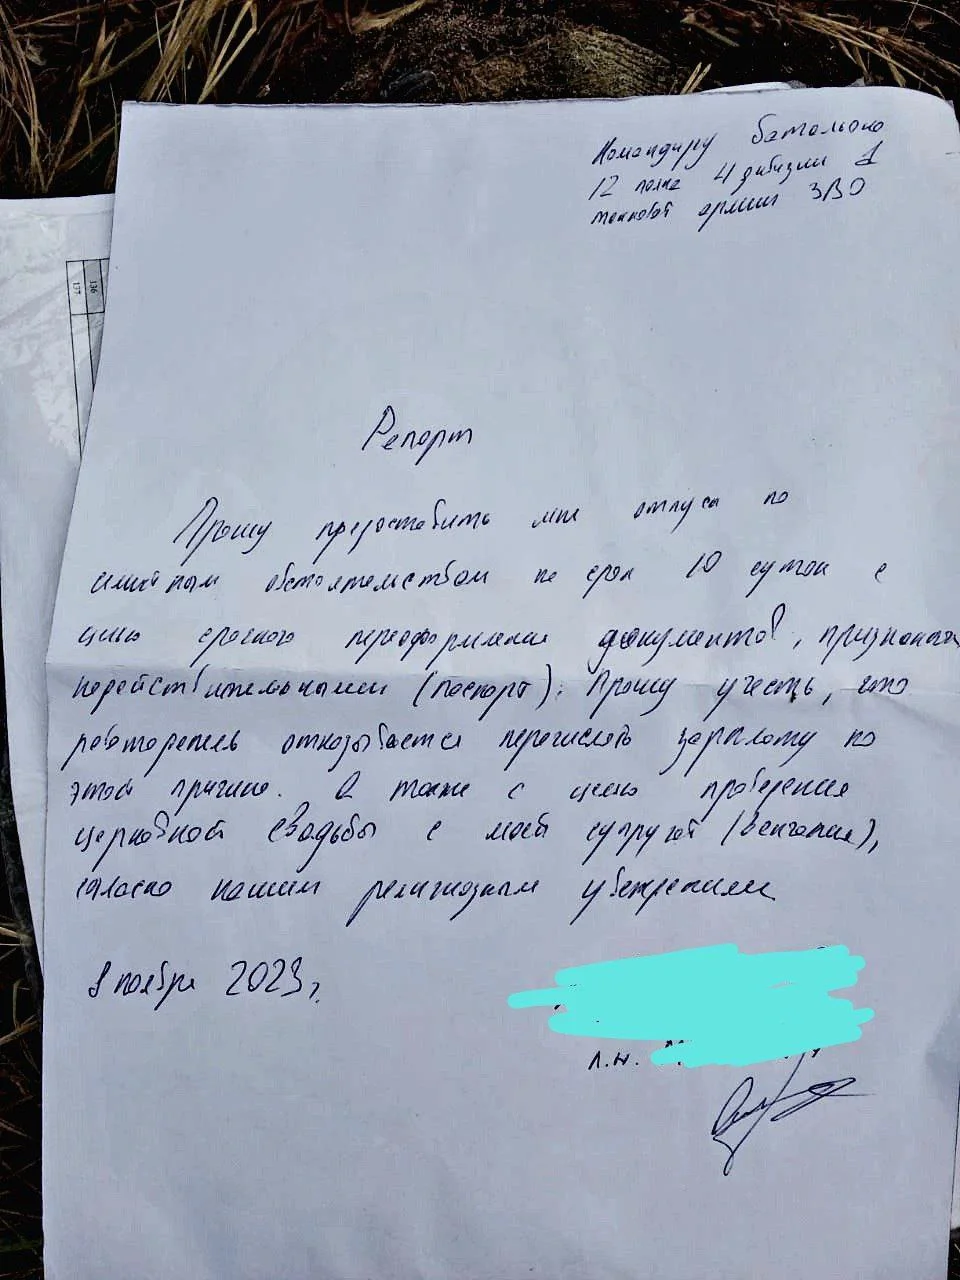 Командиру батальона
12 полка 4 дивизии 1
танковой армии ЗВО
136
137
Рапорт
Прошу предоставить мне отпуск по
обстоятельством на срок 10 суток с
целью срочного переоформления документов, признаных
недействительными (паспорт). Прошу учесть, что
работодатель отказывается перечислять зарплату по
этой причине. А также с целью проведения
церковной свадьбы с моей супругой (венчание),
согласно нашим религиозным убеждениям
8 ноября 2023г.
л.н.